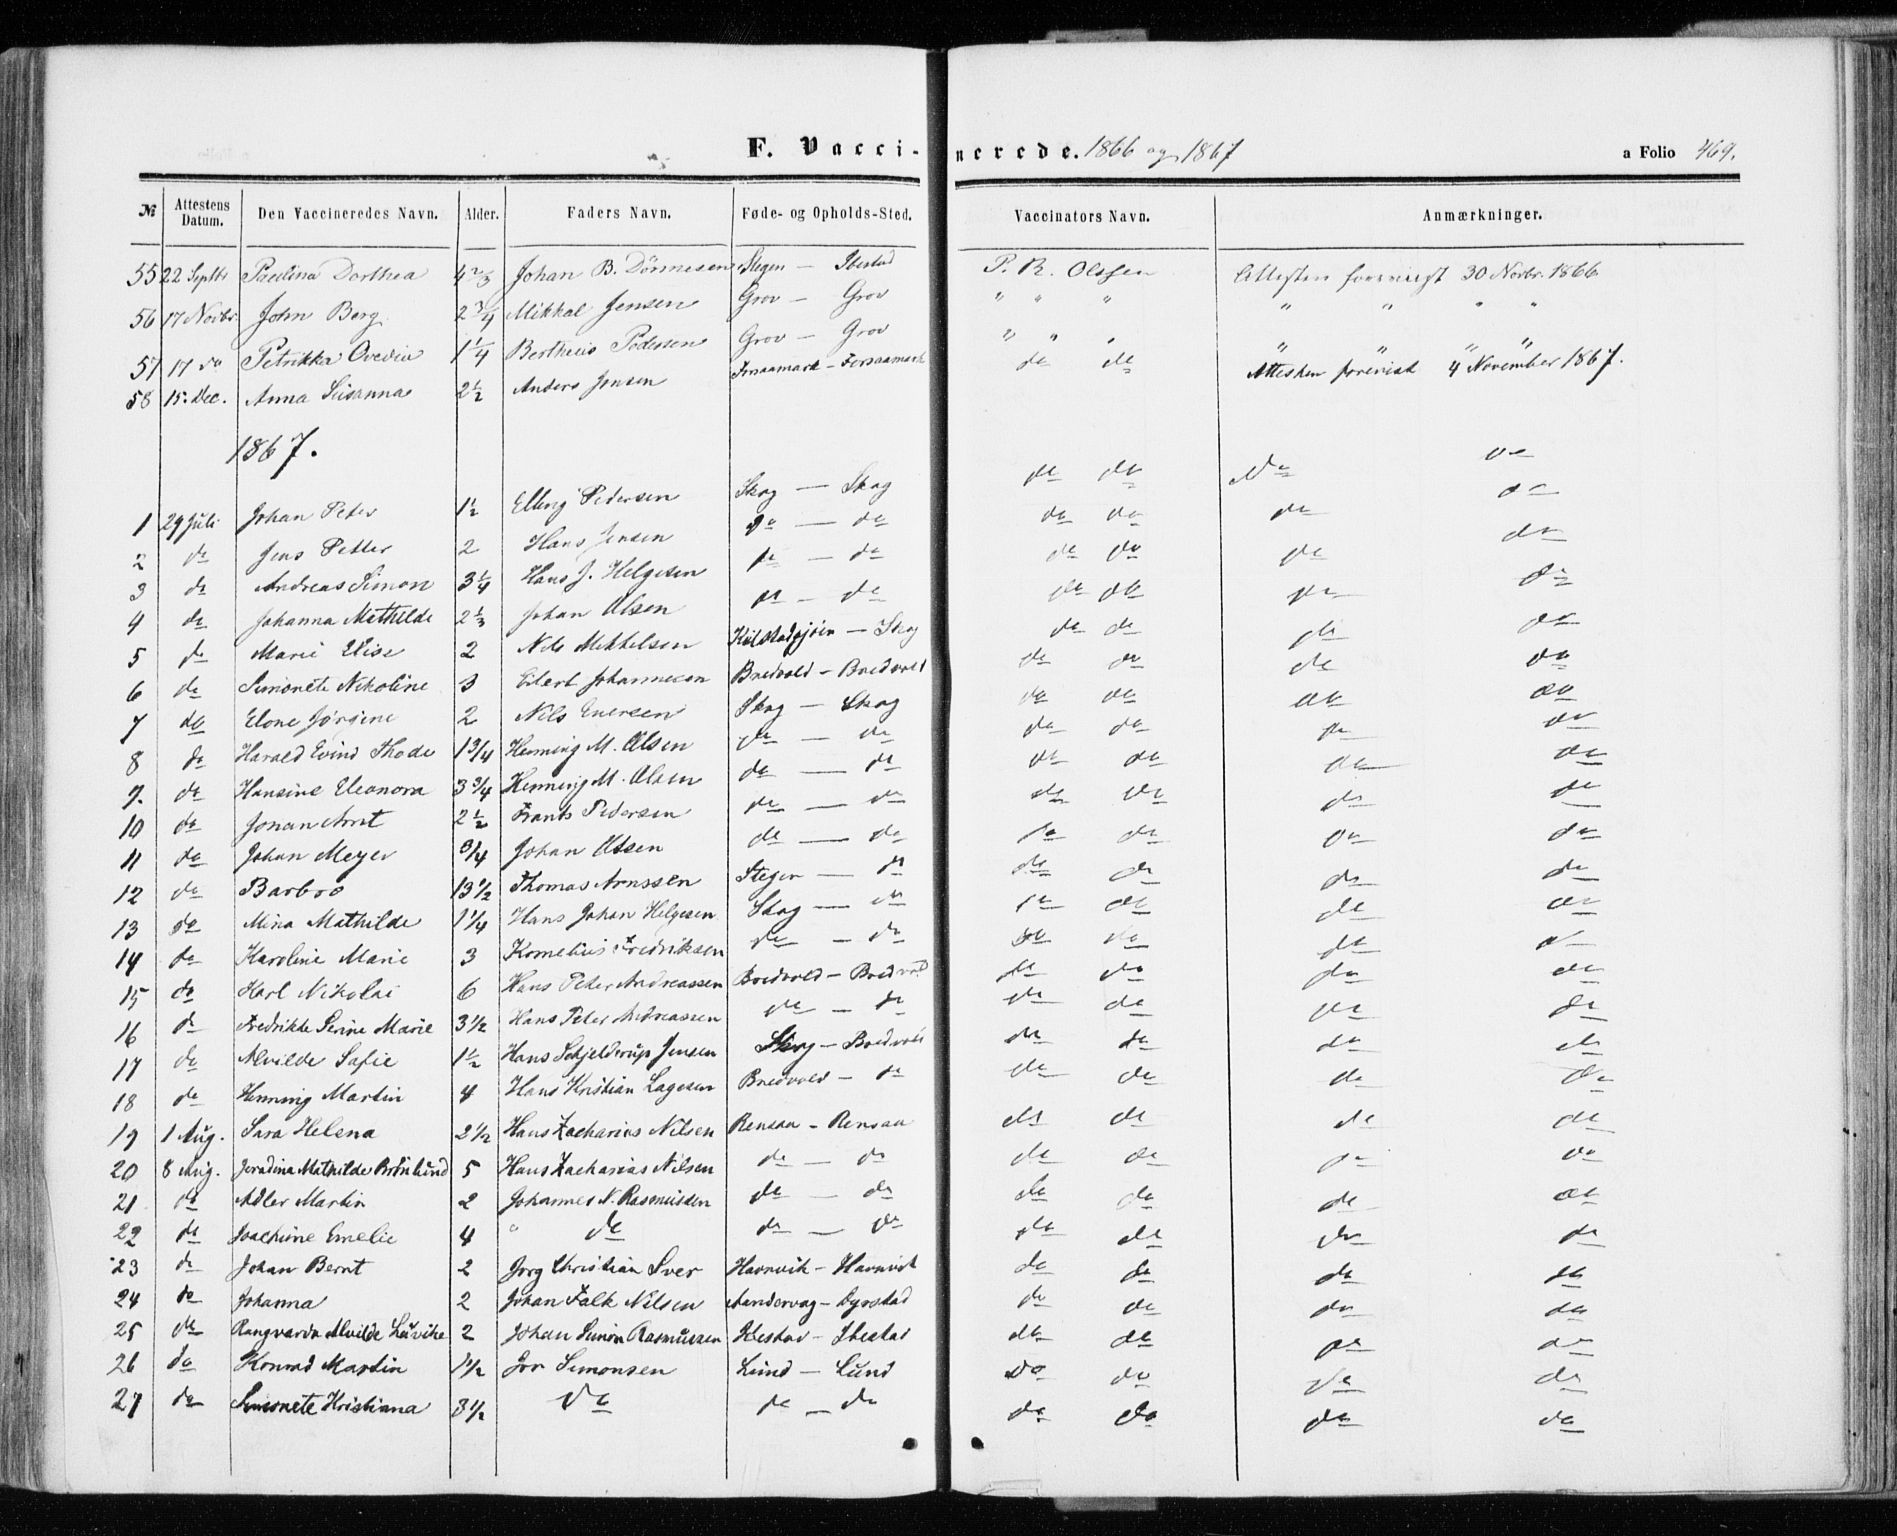 F. Vaccinerede. 1866 og 1867
a Folio 469.
№ Attestens Datum. Den Vaccineredes Navn. Alder. Faders Navn. Føde- og Opholds-Sted. Vaccinators Navn. Anmærkninger.
55 22 Septbr Paulina Dorthea 4 2/3 Johan B. Dönnesen Stegen — Ibestad P. R. Olssen Attesten foreviist 30 Novbr. 1866
56 17 Novbr. John Berg 2 3/4 Mikkal Jensen Grov — Grov " " " " " " "
57 17 do Petrikka Ovedia 1 1/4 Bertheus Pedersen Grov — Grov " " " " " " "
58 15. Dec. Anna Susanna 2 1/2 Anders Jensen Forsaamark — Forsaamark do do Attesten foreviist 4 November 1867.
1867.
1 29 Juli Johan Peter 1 1/2 Elling Pedersen Skog — Skog do do do do
2 do Jens Petter 2 Hans Jensen do — do do do do do
3 do Andreas Simon 3 1/4 Hans J. Helgesen do — do do do do do
4 do Johanna Mathilde 2 1/3 Johan Olsen do — do do do do do
5 do Marie Elise 2 Nils Mikkelsen — Skog do do do do
6 do Simonete Nikoline 3 Edert Johannesen Bredvold — Bredvold do do do do
7 do Elone Jørgine 2 Nils Enersen Skog — Skog do do do do
8 do Harald Evind Thode 1 3/4 Henning M. Olsen do — do do do do do
9. do Hansine Eleonora 3 3/4 Henning M. Olsen do — do do do do do
10 do Jonan Arnt 2 1/2 Frants Pedersen do — do do do do do
11 do Johan Meyer 3/4 Johan Olsen do — do do do do do
12 do Barbro 13 1/2 Thomas Arnssen Stegen — do do do do do
13 do Mina Mathilde 1 1/4 Hans Johan Helgesen Skog — do do do do do
14 do Karoline Marie 3 Kornelius Fredriksen do — do do do do do
15 do Karl Nikolai 6 Hans Peter Andreassen Bredvold — Bredvold do do do do
16 do Fredrikke Serine Marie 3 1/2 Hans Peter Andreassen do — do do do do do
17 do Alvilde Sofie 1 1/2 Hans Schjelderup Jensen Skog — Bredvold do do do do
18 do Henning Martin 4 Hans Kristian Lagesen Bredvold — do do do do do
19 1 Aug. Sara Helena 2 1/2 Hans Zacharias Nilsen Rensaa — Rensaa do do do do
20 8 Aug. Jeradina Mathilde Brönlund 5 Hans Zacharias Nilsen do — do do do do do
21 do Adler Martin 2 Johannes N. Rasmussen do — do do do do do
22 do Joachime Emelie 4 " do do — do do do do do
23 do Johan Bernt 2 Jørg Christian Sver Havnvik — Havnvik do do do do
24 do Johanna 2 Johan Falk Nilsen Aandervag — Dyrstad do do do do
25 do Rangvarda Alvilde 2 Johan Simon Rasmussen Ibestad — Ibestad do do do do
26 do Konrad Martin 1 1/2 Jor Simonsen Lund — Lund do do do do
27 do Simonete Kristiana 3 1/2 do do — do do do do do